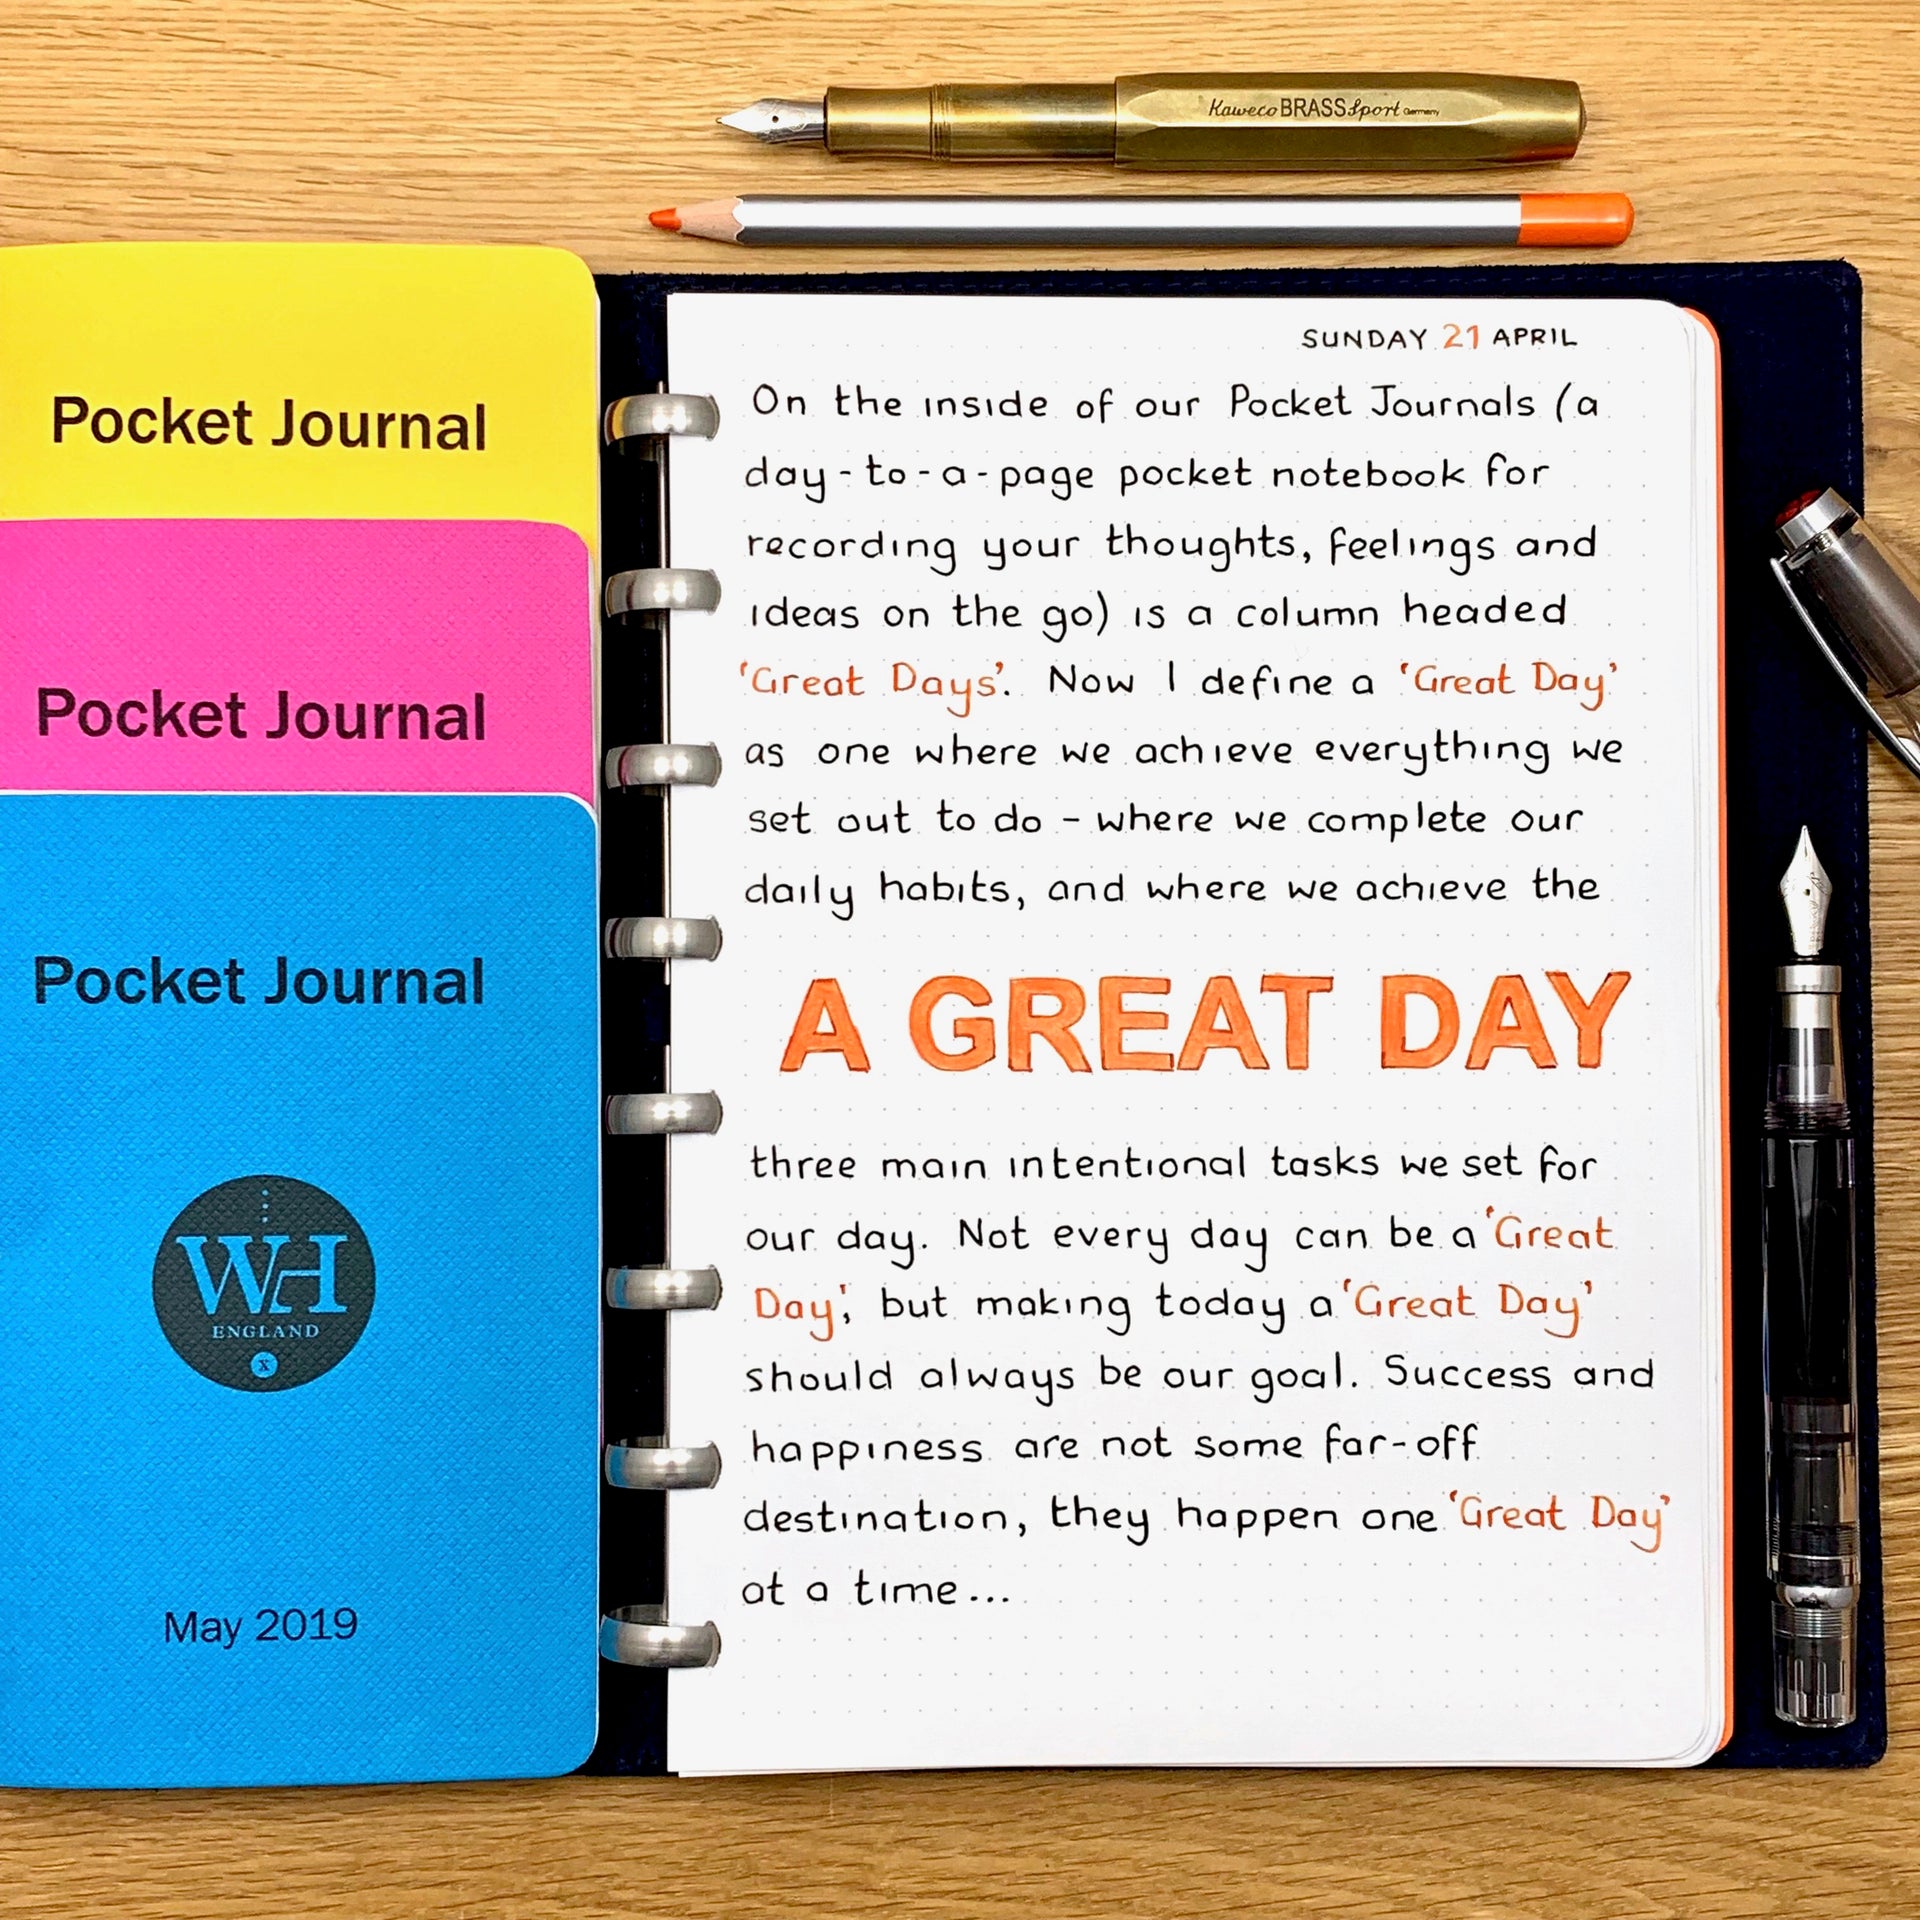 Kaweco BRASS Sport Germany
Pocket Journal
Pocket Journal
Pocket Journal
WH
ENGLAND
X
May 2019
SUNDAY 21 APRIL
On the inside of our Pocket Journals (a
day-to-a-page pocket notebook for
recording your thoughts, feelings and
ideas on the go) is a column headed
'Great Days'. Now I define a 'Great Day'
as one where we achieve everything we
set out to do - where we complete our
daily habits, and where we achieve the
A GREAT DAY
three main intentional tasks we set for
our day. Not every day can be a 'Great
Day', but making today a 'Great Day'
should always be our goal. Success and
happiness are not some far-off
destination, they happen one 'Great Day'
at a time...